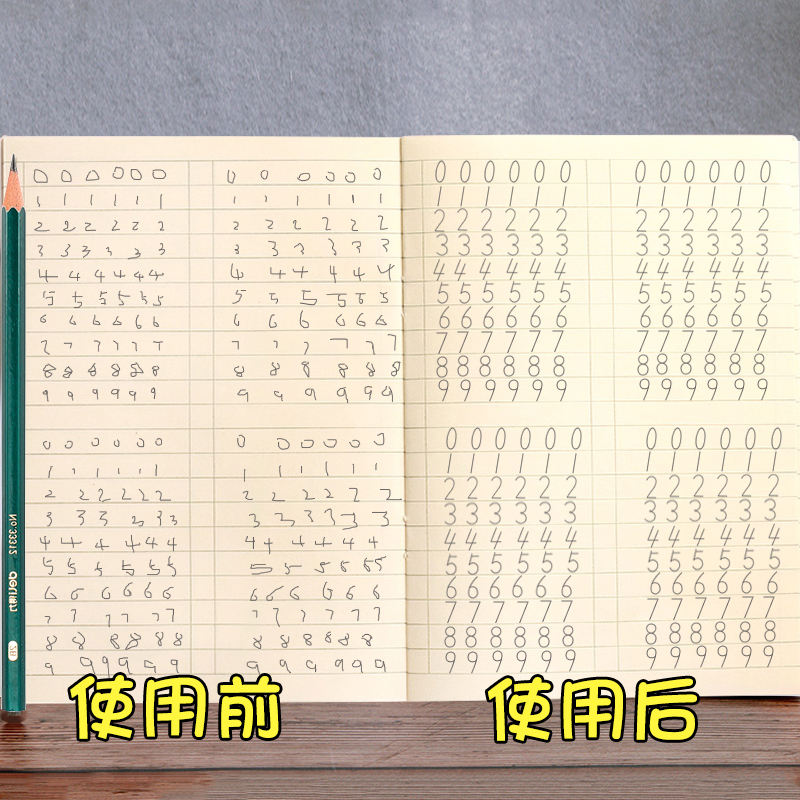 0 0 0 0 0 0
1 1 1 1 1 1
2 2 2 2 2 2
3 3 3 3 3 3
4 4 4 4 4 4
5 5 5 5 5 5
6 6 6 6 6 6
7 7 7 7 7 7
8 8 8 8 8 8
9 9 9 9 9 9
0 0 0 0 0 0
1 1 1 1 1 1
2 2 2 2 2 2
3 3 3 3 3 3
4 4 4 4 4 4
5 5 5 5 5 5
6 6 6 6 6 6
7 7 7 7 7 7
8 8 8 8 8 8
9 9 9 9 9 9
0 0 0 0 0 0
1 1 1 1 1 1
2 2 2 2 2 2
3 3 3 3 3 3
4 4 4 4 4 4
5 5 5 5 5 5
6 6 6 6 6 6
7 7 7 7 7 7
8 8 8 8 8 8
9 9 9 9 9 9
0 0 0 0 0 0
1 1 1 1 1 1
2 2 2 2 2 2
3 3 3 3 3 3
4 4 4 4 4 4
5 5 5 5 5 5
6 6 6 6 6 6
7 7 7 7 7 7
8 8 8 8 8 8
9 9 9 9 9 9
0 0 0 0 0 0
1 1 1 1 1 1
2 2 2 2 2 2
3 3 3 3 3 3
4 4 4 4 4 4
5 5 5 5 5 5
6 6 6 6 6 6
7 7 7 7 7 7
8 8 8 8 8 8
9 9 9 9 9 9
0 0 0 0 0 0
1 1 1 1 1 1
2 2 2 2 2 2
3 3 3 3 3 3
4 4 4 4 4 4
5 5 5 5 5 5
6 6 6 6 6 6
7 7 7 7 7 7
8 8 8 8 8 8
9 9 9 9 9 9
0 0 0 0 0 0
1 1 1 1 1 1
2 2 2 2 2 2
3 3 3 3 3 3
4 4 4 4 4 4
5 5 5 5 5 5
6 6 6 6 6 6
7 7 7 7 7 7
8 8 8 8 8 8
9 9 9 9 9 9
0 0 0 0 0 0
1 1 1 1 1 1
2 2 2 2 2 2
3 3 3 3 3 3
4 4 4 4 4 4
5 5 5 5 5 5
6 6 6 6 6 6
7 7 7 7 7 7
8 8 8 8 8 8
9 9 9 9 9 9
No.33312 deli 2B
使用前
使用后